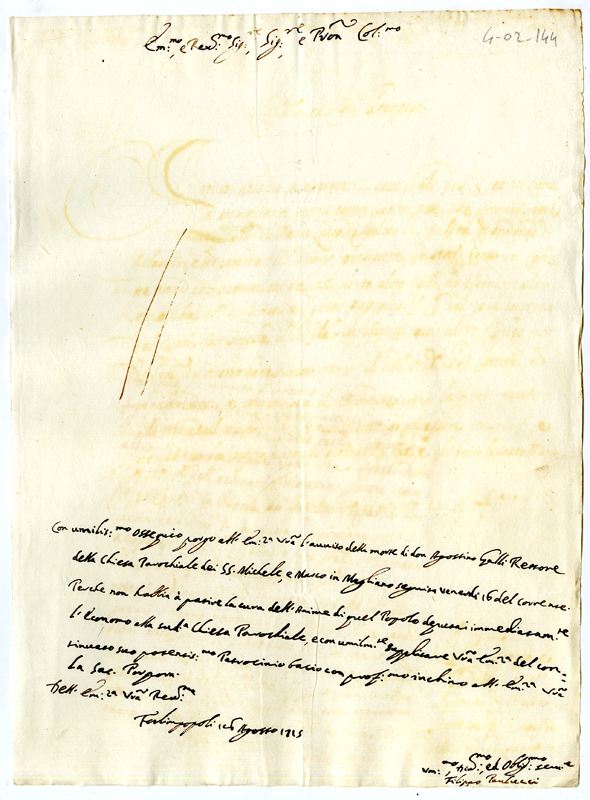 Em:mo, e Rev:mo Sig:re, Sig:re e Pron Col:mo
4-02-144
Con umiliss:mo ossequio porgo all' Em:za Vra l'avviso della morte di don Agostino Galli Rettore
della Chiesa Parochiale dei SS. Michele, e Marco in Magliano seguita Venerdi 16 del corrente.
Perche non habbia à patire la cura dell'Anime di quel Popolo deputai immediatam:te
l'Economo alla sud:a Chiesa Parochiale, e con umilm:te supplicare Vra Em:za del con-
tinuato suo potentis:mo Patrocinio bacio con prof:mo inchino all' Em:za Vra
la Sac. Porpora.
Dell' Em:za Vra Rev:ma
Forlimpopoli Agosto 1715
Um:mo, Dev:mo, ed Obb:mo
Filippo